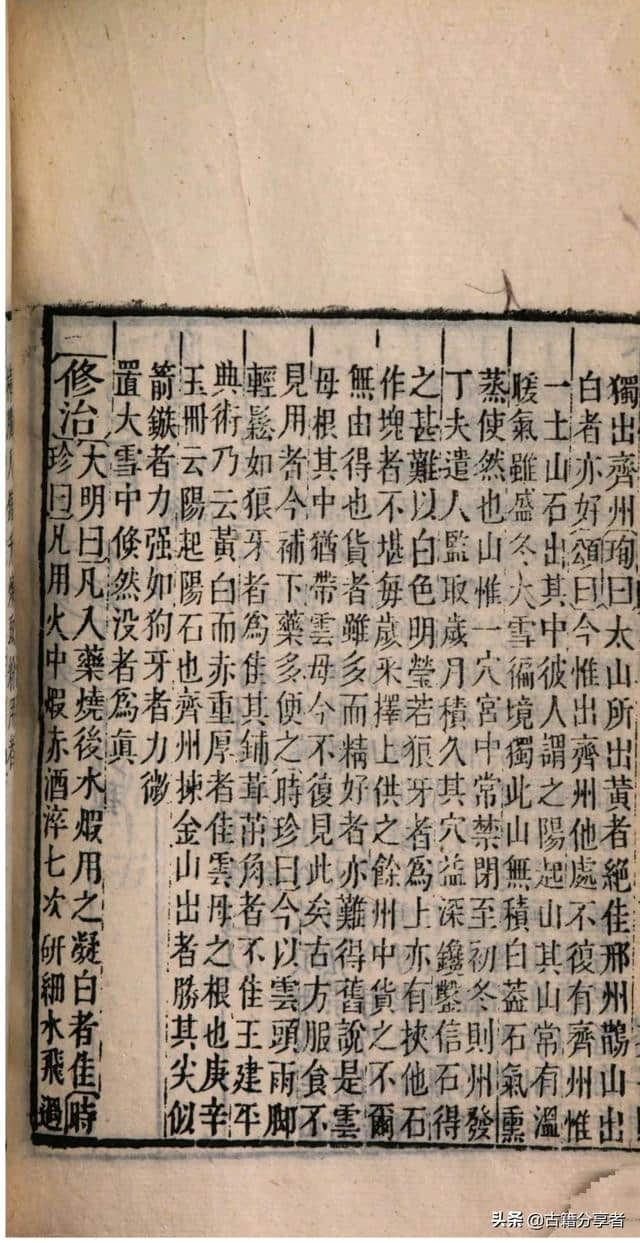 獨出齊州珣曰太山所出黄者絶佳邢州鵲山出
白者亦好頌曰今惟出齊州他處不復有齊州惟
一土山石出其中彼人謂之陽起山其山常有溫
暖氣雖盛冬大雪徧境獨此山無積白葢石氣熏
蒸使然也山惟一穴宮中常禁閉至初冬則州發
丁夫遣人監取歲月積久其穴益深鑱鑿信石得
之甚難以白色明瑩若狼牙者爲上亦有挾他石
作塊者不堪每歲采擇上供之餘州中貨之不爾
無由得也貨者雖多而精好者亦難得舊說是雲
母根其中猶帶雲母今不復見此矣古方服食不
見用者今補下藥多使之時珍曰今以雲頭雨脚
輕鬆如狼牙者爲佳其鋪茸茁角者不佳王建平
典術乃云黄白而赤重厚者佳雲母之根也庚辛
玉冊云陽起陽石也齊州揀金山出者勝其尖似
箭鏃者力强如狗牙者力微
置大雪中倐然没者爲眞
修治大明曰凡入藥燒後水煆用之凝白者佳時
珍曰凡用火中煆赤酒淬七次研細水飛過
头条 @古籍分享者